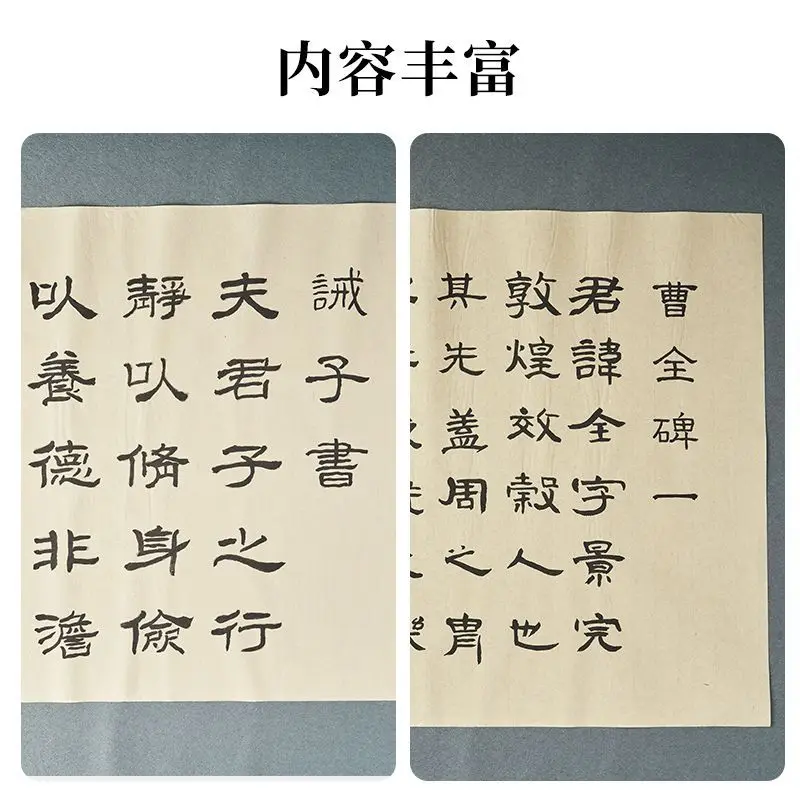 内容丰富
誡子書
夫君子之行
靜以脩身儉
以養德非澹
曹全碑一
君諱全字景完
敦煌效穀人也
其先蓋周之胄